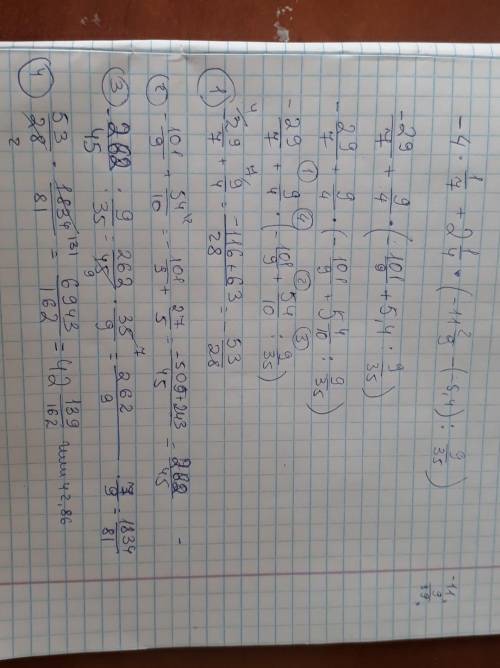 -4 · 1/7 + 2 1/4 · (-11 2/9 - (-5,4) : 9/35)
-29/7 + 9/4 · (-101/9 + 5,4 : 9/35)
-29/7 + 9/4 · (-101/9 + 5 4/10 : 9/35)
① ④ ② ③
-29/7 + 9/4 · (-101/9 + 54/10 : 9/35)
① -29/7 + 9/4 = -116+63/28 = -53/28
② -101/9 + 54/10 = -101/9 + 27/5 = -509+243/45 = -262/45
③ -262/45 : 9/35 = 262/45 · 35/9 = 262/9 · 7/9 = 1834/81
④ 53/28 · 1834/81 = 6943/162 = 42 139/162 или 42,86
-11